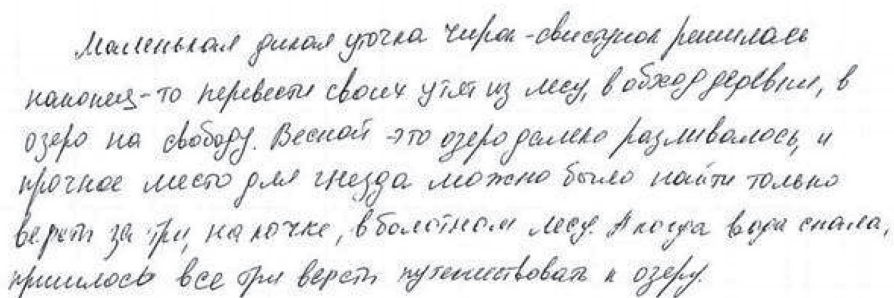 Маленькая дикая уточка чирок-свистунок решилась
наконец-то перевести своих утят из лесу, в обход деревни, в
озеро на свободу. Весной это озеро далеко разливалось, и
прочное место для гнезда можно было найти только
версты за три, на кочке, в болотном лесу. А когда вода спала,
пришлось все три версты путешествовать к озеру.